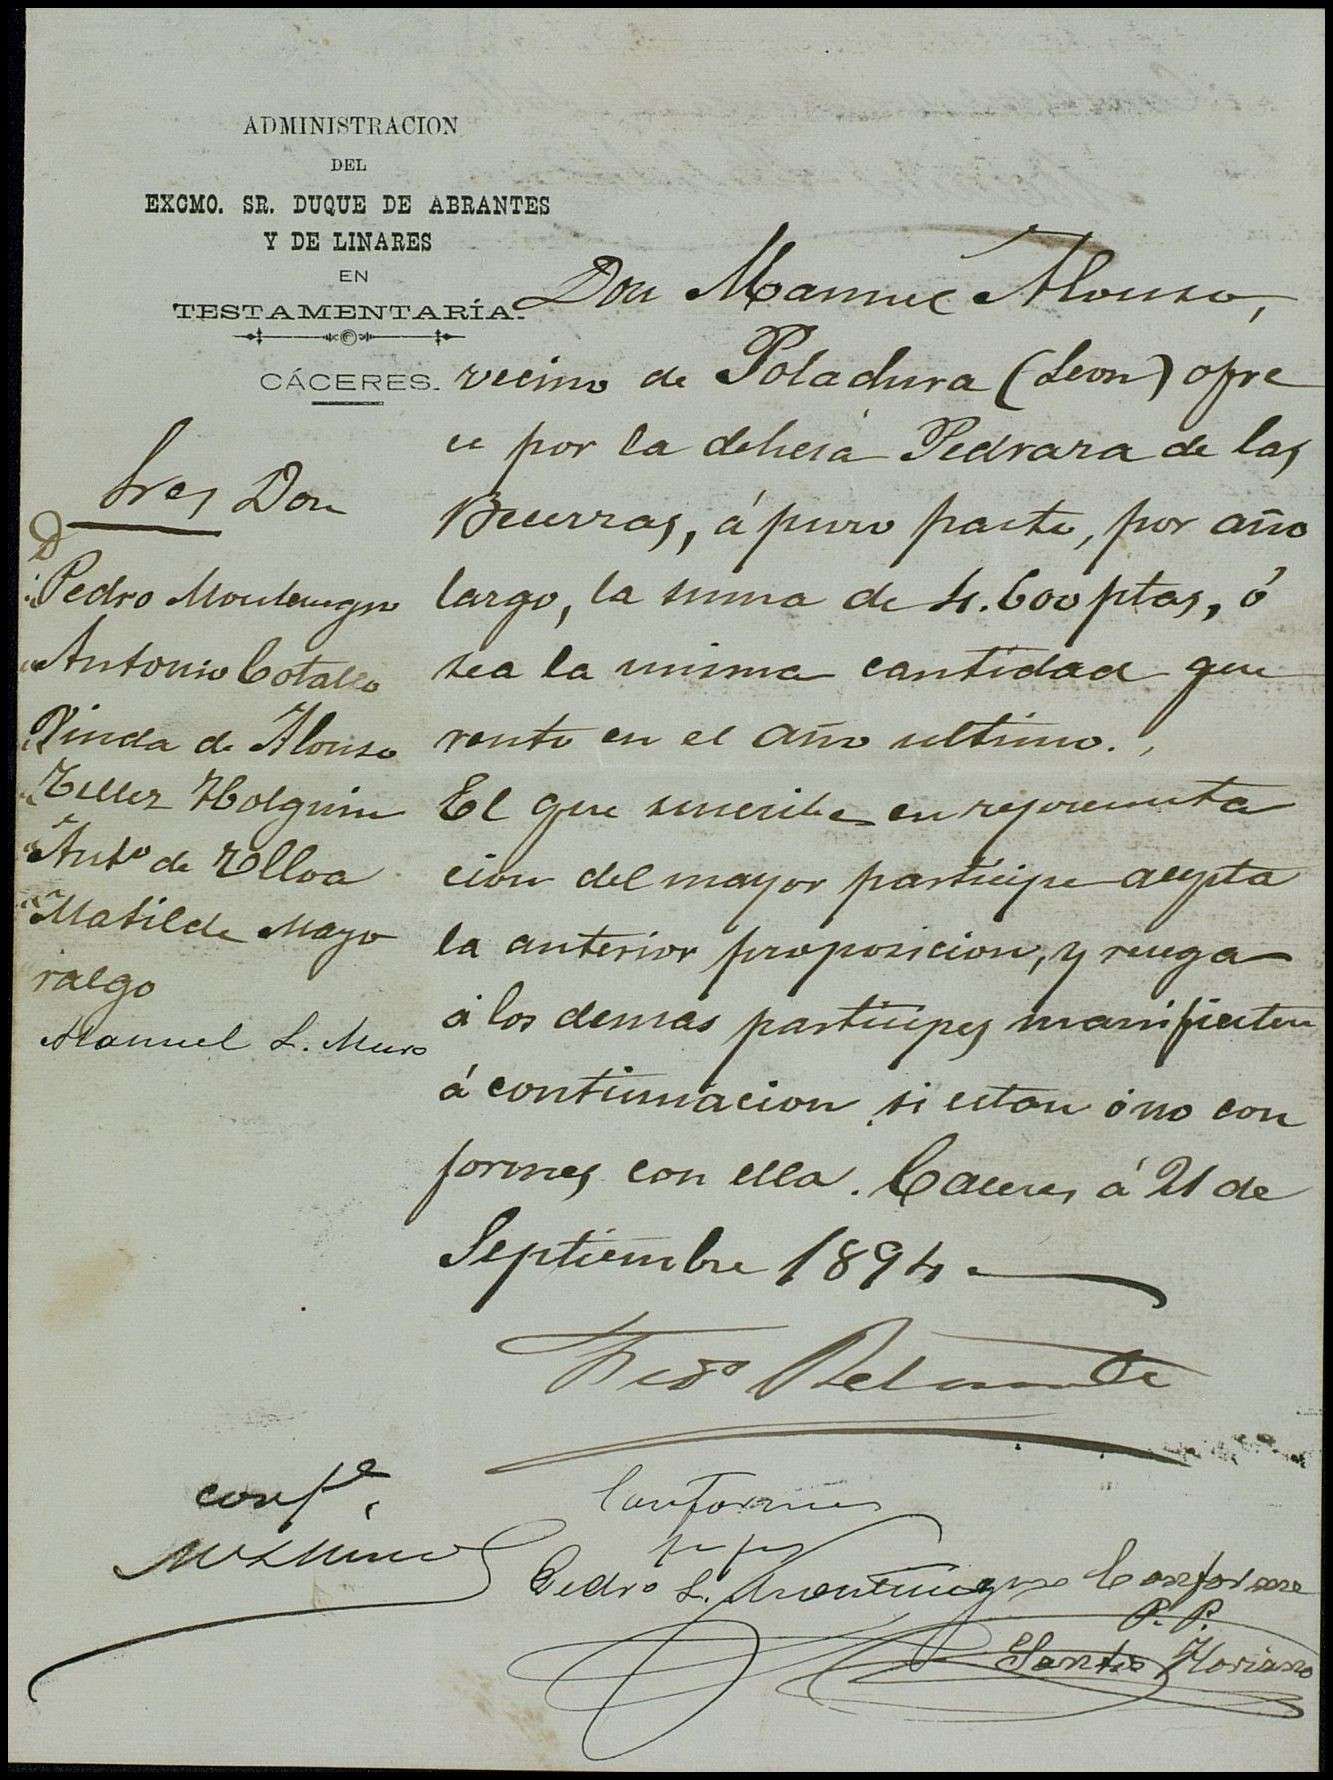 ADMINISTRACION
DEL
EXCMO. SR. DUQUE DE ABRANTES
Y DE LINARES
EN
TESTAMENTARÍA.
CÁCERES.
Sres Don
D
Pedro Montenegro
Antonio Cotallo
Viuda de Alonso
Tellez Holguin
Antº de Ulloa
Matilde Mayo
ralgo
Manuel L. Muro
Don Manuel Alonso,
vecino de Poladura (Leon) ofre
ce por la dehesa Pedraza de las
Becerras, á puro pasto, por año
largo, la suma de 4.600 ptas, ó
sea la misma cantidad que
rentó en el año ultimo.
El que suscribe en representa
cion del mayor participe acepta
la anterior proposicion, y ruega
á los demas participes manifiesten
á continuacion si estan ó no con
formes con ella. Caceres á 21 de
Septiembre 1894.
Fedº Belmonte
conf.e
M L Muro
Conforme
Pedro L. Montenegro
Conforme
P. P.
Santos Floriano